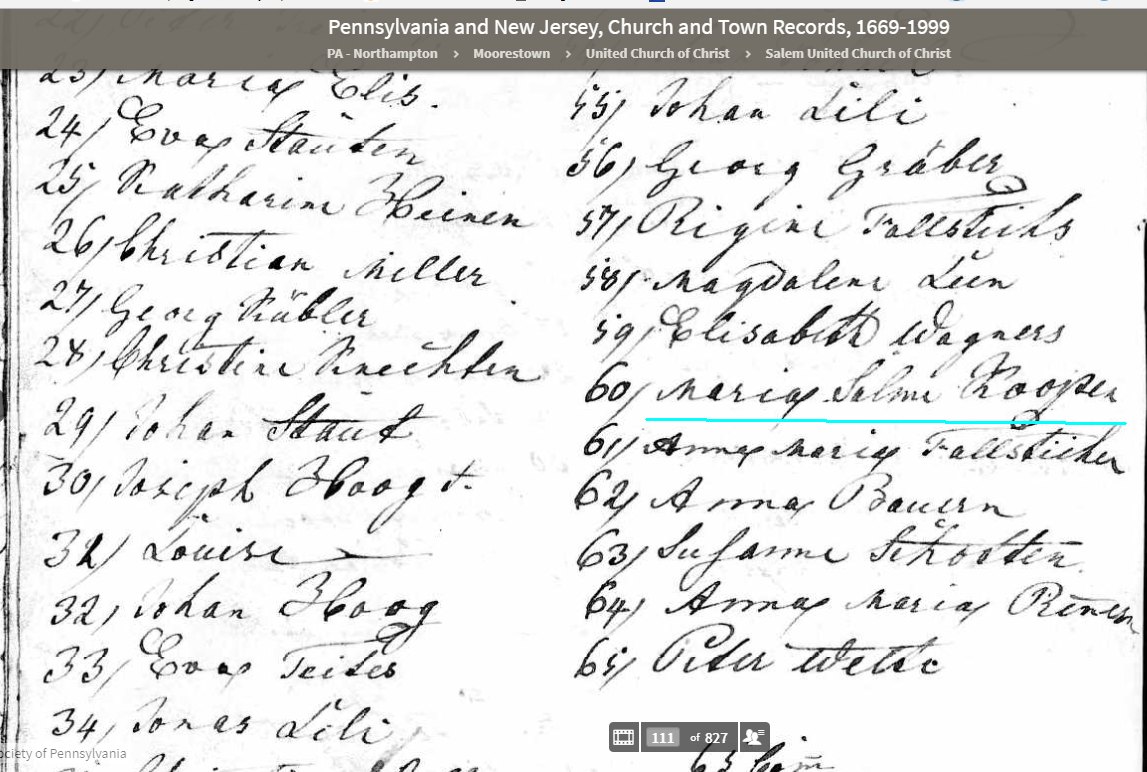 Pennsylvania and New Jersey, Church and Town Records, 1669-1999
PA - Northampton > Moorestown > United Church of Christ > Salem United Church of Christ
23) Maria Elis.
24) Eva Stauten
25) Katharine Heinen
26) Christian Miller
27) Georg Kübler
28) Christine Knechten
29) Johan Staut
30) Joseph Hoog t.
32) Louise —
32) Johan Hoog
33) Eva Teites
34) Jonas Lili
55) Johan Lili
56) Georg Gräber
57) Rigine Fallstichs
58) Magdalena
59) Elisabeth Wagners
60) Maria Salme Kooper
61) Anna Maria Fallsticher
62) Anna Bauern
63) Susanna Schotten
64) Anna Maria
65) Peter
111 of 827
65 Com
ociety of Pennsylvania